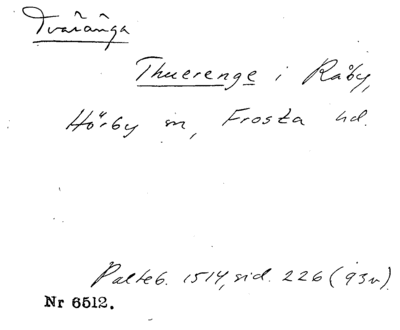 Tväränga
Thuerenge i Råby,
Hörby sn, Frosta hd.
Palteb. 1514, sid. 226 (93v)
Nr 6512.